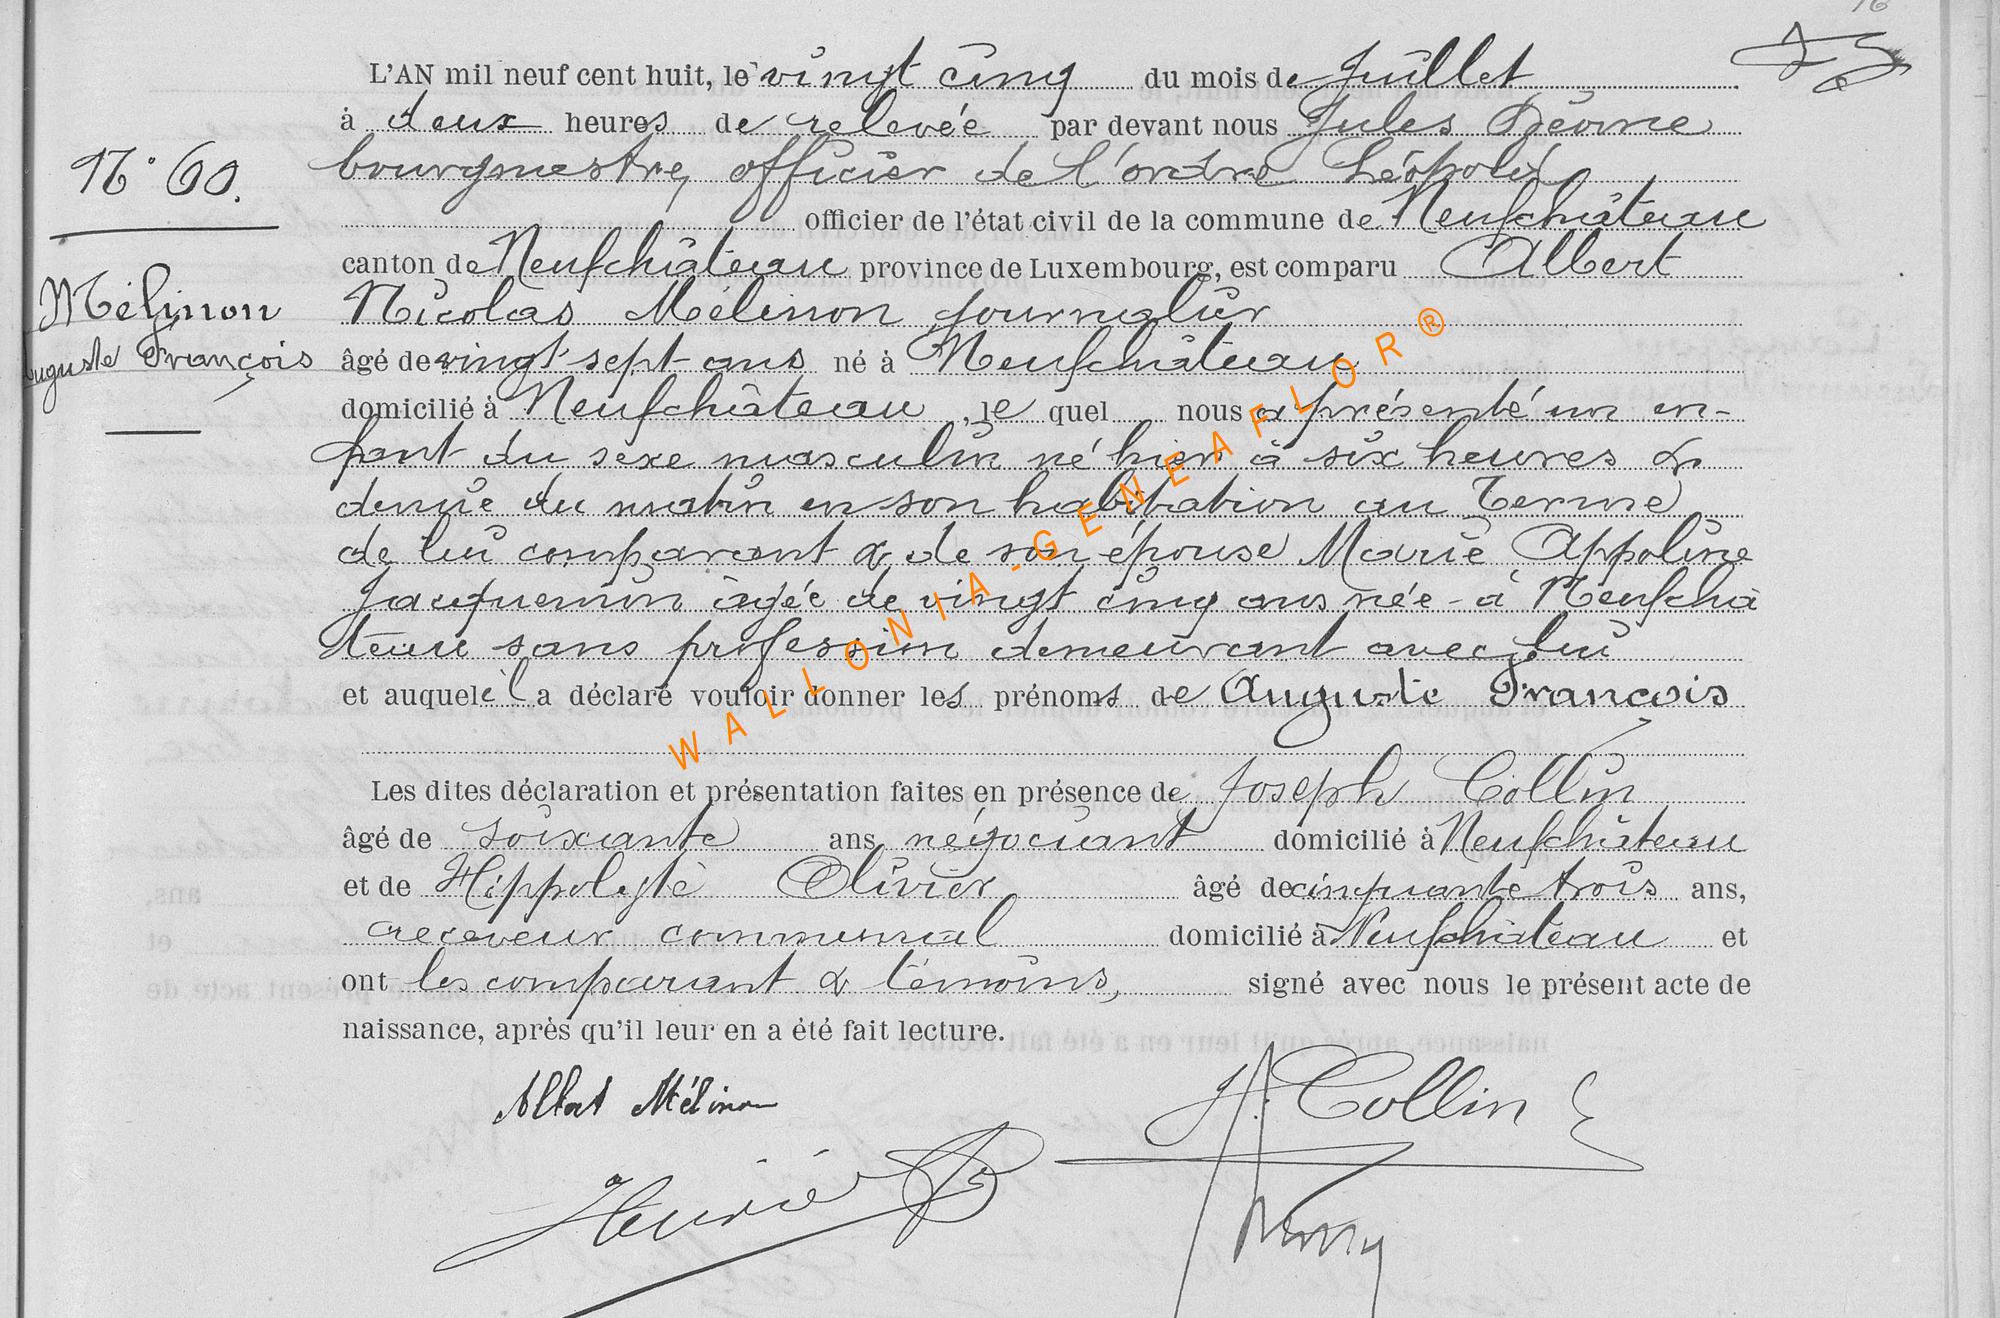 16
L'AN mil neuf cent huit, le vingt cinq du mois de Juillet
à deux heures de relevée par devant nous Jules
bourgmestre, officier de l'ordre Léopold
N° 60.
officier de l'état civil de la commune de Neufchâteau
canton de Neufchâteau province de Luxembourg, est comparu Albert
Mélinon
Nicolas Mélinon journalier
Auguste François
âgé de vingt-sept ans né à Neufchâteau
domicilié à Neufchâteau, le quel nous a présenté un en-
fant du sexe masculin né hier à six heures &
demie du matin en son habitation au Terme
de lui comparant & de son épouse Marie Appoline
Jacquemin âgée de vingt cinq ans née à Neufchâ
teau sans profession demeurant avec lui
et auquel il a déclaré vouloir donner les prénoms de Auguste François
Les dites déclaration et présentation faites en présence de Joseph Collin
âgé de soixante ans négociant domicilié à Neufchâteau
et de Hippolyte Olivier âgé de cinquante trois ans,
receveur communal domicilié à Neufchâteau et
ont les comparant & témoins, signé avec nous le présent acte de
naissance, après qu'il leur en a été fait lecture.
Albert Mélinon
J. Collin
WALLONIA-GENEAFLOR®